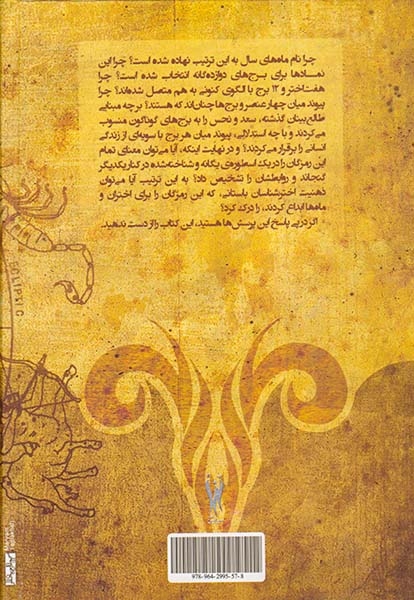 چرا نام ماه‌های سال به این ترتیب نهاده شده است؟ چرا این
نمادها برای برج‌های دوازده‌گانه انتخاب شده است؟ چرا
هفت‌اختر و ۱۲ برج با الگوی کنونی به هم متصل شده‌اند؟ چرا
پیوند میان چهار عنصر و برج‌ها چنان‌اند که هستند؟ بر چه مبنایی
طالع‌بینان گذشته، سعد و نحس را به برج‌های گوناگون منسوب
می‌کردند و با چه استدلالی، پیوند میان هر برج با سویه‌ای از زندگی
انسانی را برقرار می‌کردند؟ و در نهایت اینکه، آیا می‌توان معنای تمام
این رمزگان را در یک اسطوره‌ی یگانه و شناخته‌شده در کنار یکدیگر
گنجاند و روابطشان را تشخیص داد؟ به این ترتیب آیا می‌توان
ذهنیت اخترشناسان باستانی، که این رمزگان را برای اختران و
ماه‌ها ابداع کردند، را درک کرد؟
اگر در پی پاسخ این پرسش‌ها هستید، این کتاب را از دست ندهید.
ECLIPTIC
978-964-2995-57-8